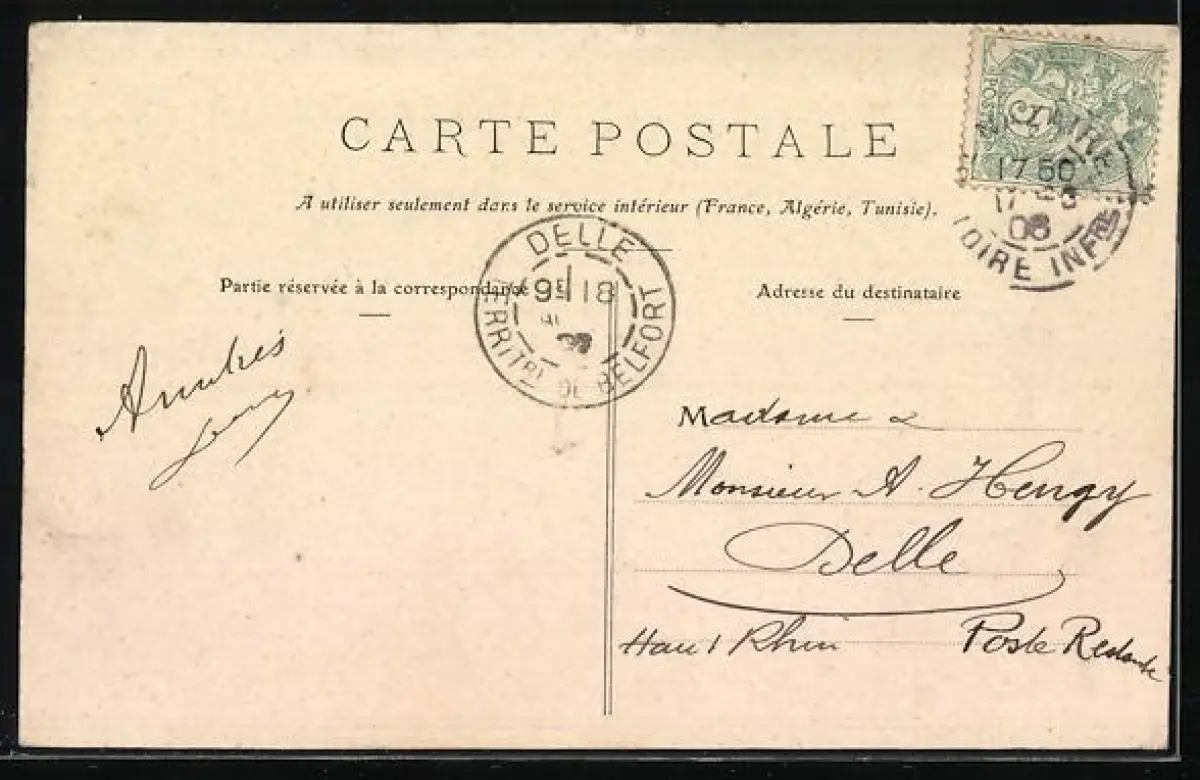 CARTE POSTALE
A utiliser seulement dans le service intérieur (France, Algérie, Tunisie).
Partie réservée à la correspondance
Adresse du destinataire
DELLE
9E 18
TERRITRE DE BELFORT
POSTES
17 50
17
08
LOIRE INFRE
Madame &
Monsieur A. Hengy
Delle
Haut Rhin
Poste Restante